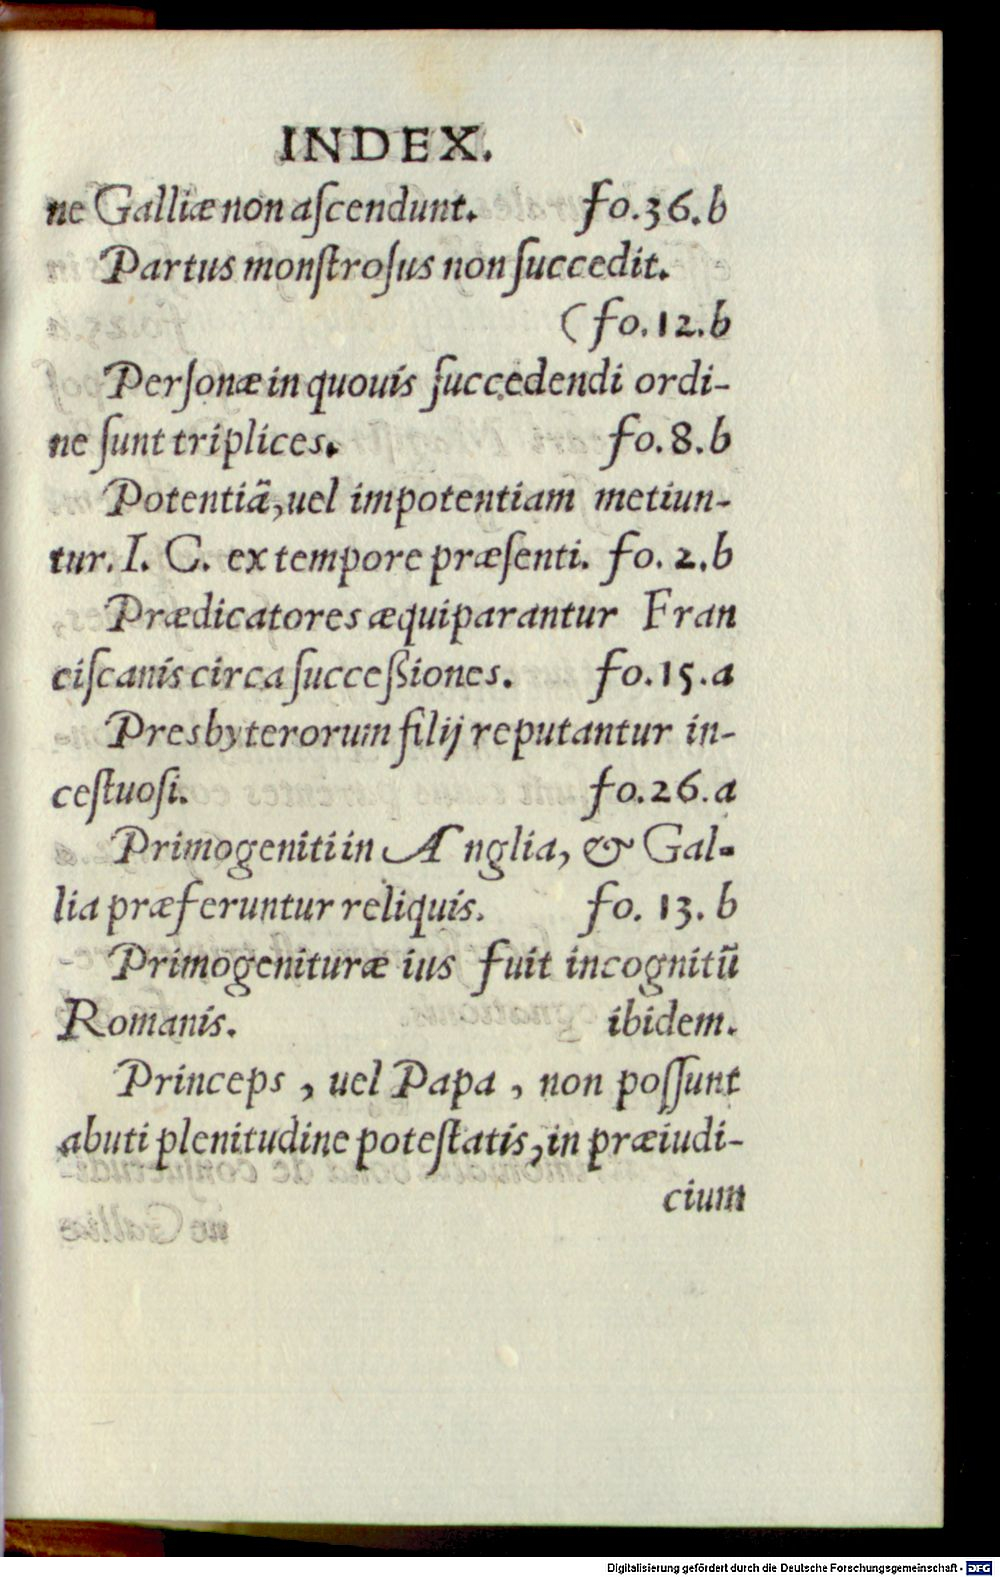 INDEX.
ne Galliæ non aſcendunt. fo.36.b
Partus monſtroſus non ſuccedit.
(fo.12.b
Perſonæ in quouis ſuccedendi ordi-
ne ſunt triplices. fo.8.b
Potentiā, uel impotentiam metiun-
tur. I. C. ex tempore præſenti. fo. 2.b
Prædicatores æquiparantur Fran
ciſcanis circa ſucceßiones. fo.15.a
Presbyterorum filij reputantur in-
ceſtuoſi. fo.26.a
Primogeniti in Anglia, & Gal-
lia præferuntur reliquis. fo. 13. b
Primogenituræ ius fuit incognitū
Romanis. ibidem.
Princeps, uel Papa, non poſſunt
abuti plenitudine poteſtatis, in præiudi-
cium
Digitalisierung gefördert durch die Deutsche Forschungsgemeinschaft - DFG